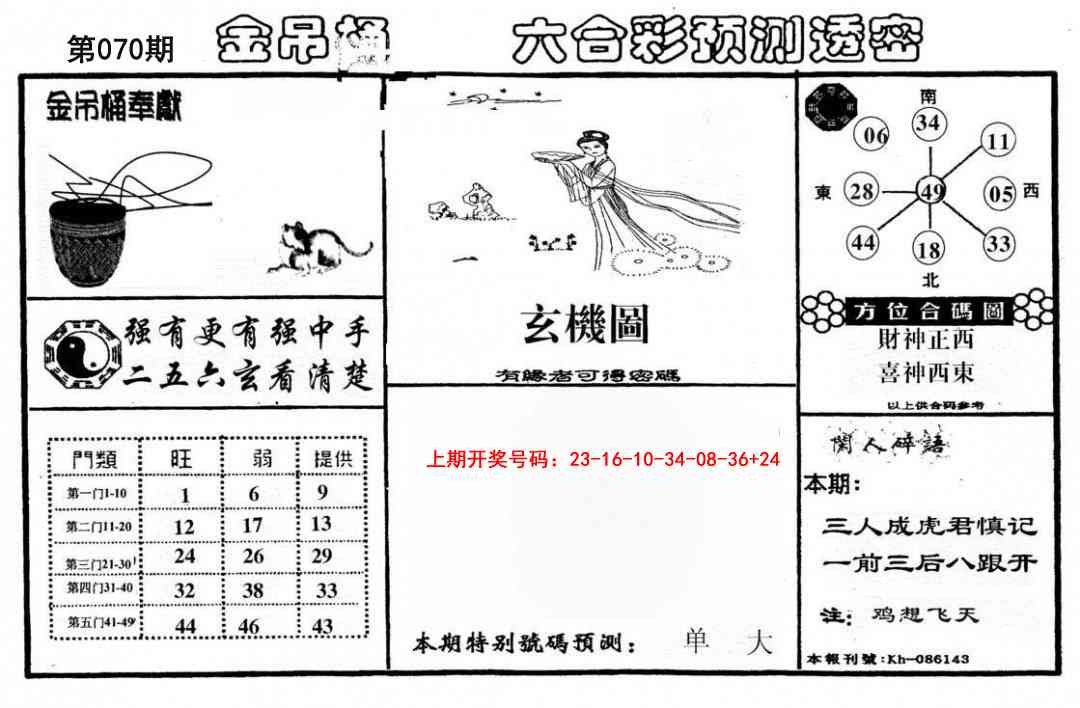 第070期 金吊桶 六合彩预测透密
金吊桶奉獻
强有更有强中手
二五六玄看清楚
門類 旺 弱 提供
第一门1-10 1 6 9
第二门11-20 12 17 13
第三门21-30 24 26 29
第四门31-40 32 38 33
第五门41-49 44 46 43
玄機圖
有緣者可得密碼
上期开奖号码：23-16-10-34-08-36+24
本期特别號碼預测： 单 大
南
06 34 11
東 28 49 05 西
44 18 33
北
方位合碼圖
財神正西
喜神西東
以上供合码参考
閑人碎語
本期：
三人成虎君慎记
一前三后八跟开
注：鸡想飞天
本報刊號:Kh-086143